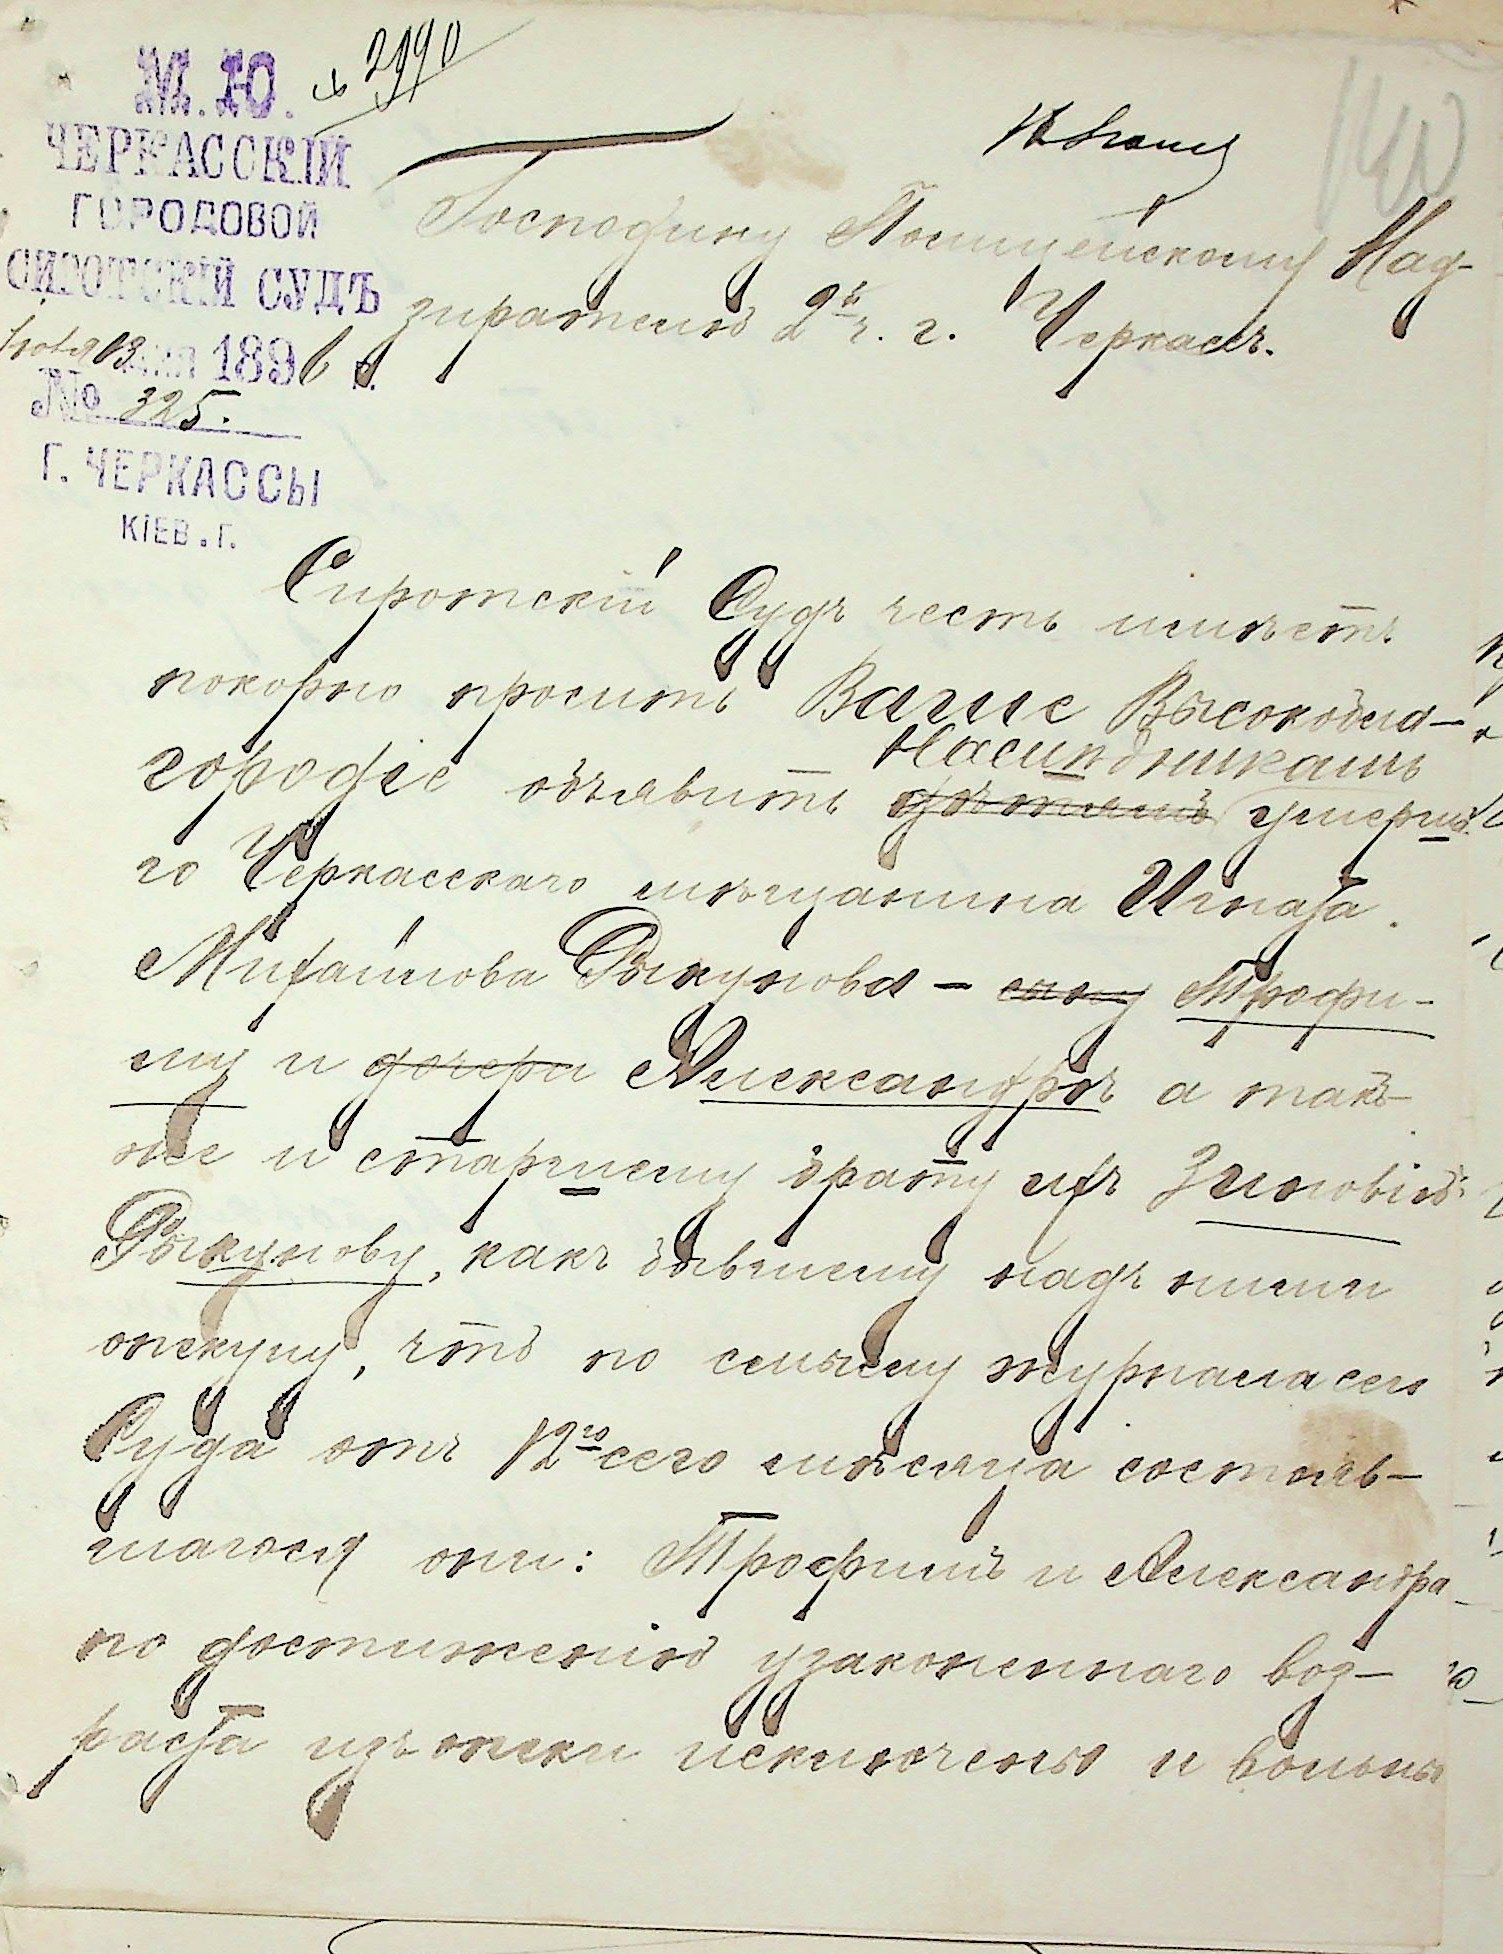 М.Ю.
№ 2990
140
ЧЕРКАССКІЙ
ГОРОДОВОЙ
СИРОТСКІЙ СУДЪ
189 6 г.
№ 325.
Г. ЧЕРКАССЫ
КІЕВ. Г.
Господину Полицейскому Над-
зирателю 2й ч. г. Черкассъ.
Сиротскій Судъ честь имѣетъ
покорно проситъ Ваше Высокобла-
городіе объявить дѣтямъ наслѣдникамъ умерша-
го Черкасскаго мѣщанина Игната
Михайлова Рыкунова – сыну Трофи-
му и дочери Александрѣ а так-
же и старшему брату ихъ Зиновію
Рыкунову, какъ бывшему надъ ними
опекуну, что по смыслу журнала сего
Суда отъ 12го сего мѣсяца состояв-
шагося они: Трофимъ и Александра
по достиженію узаконеннаго воз-
раста изъ опеки исключены и вольны